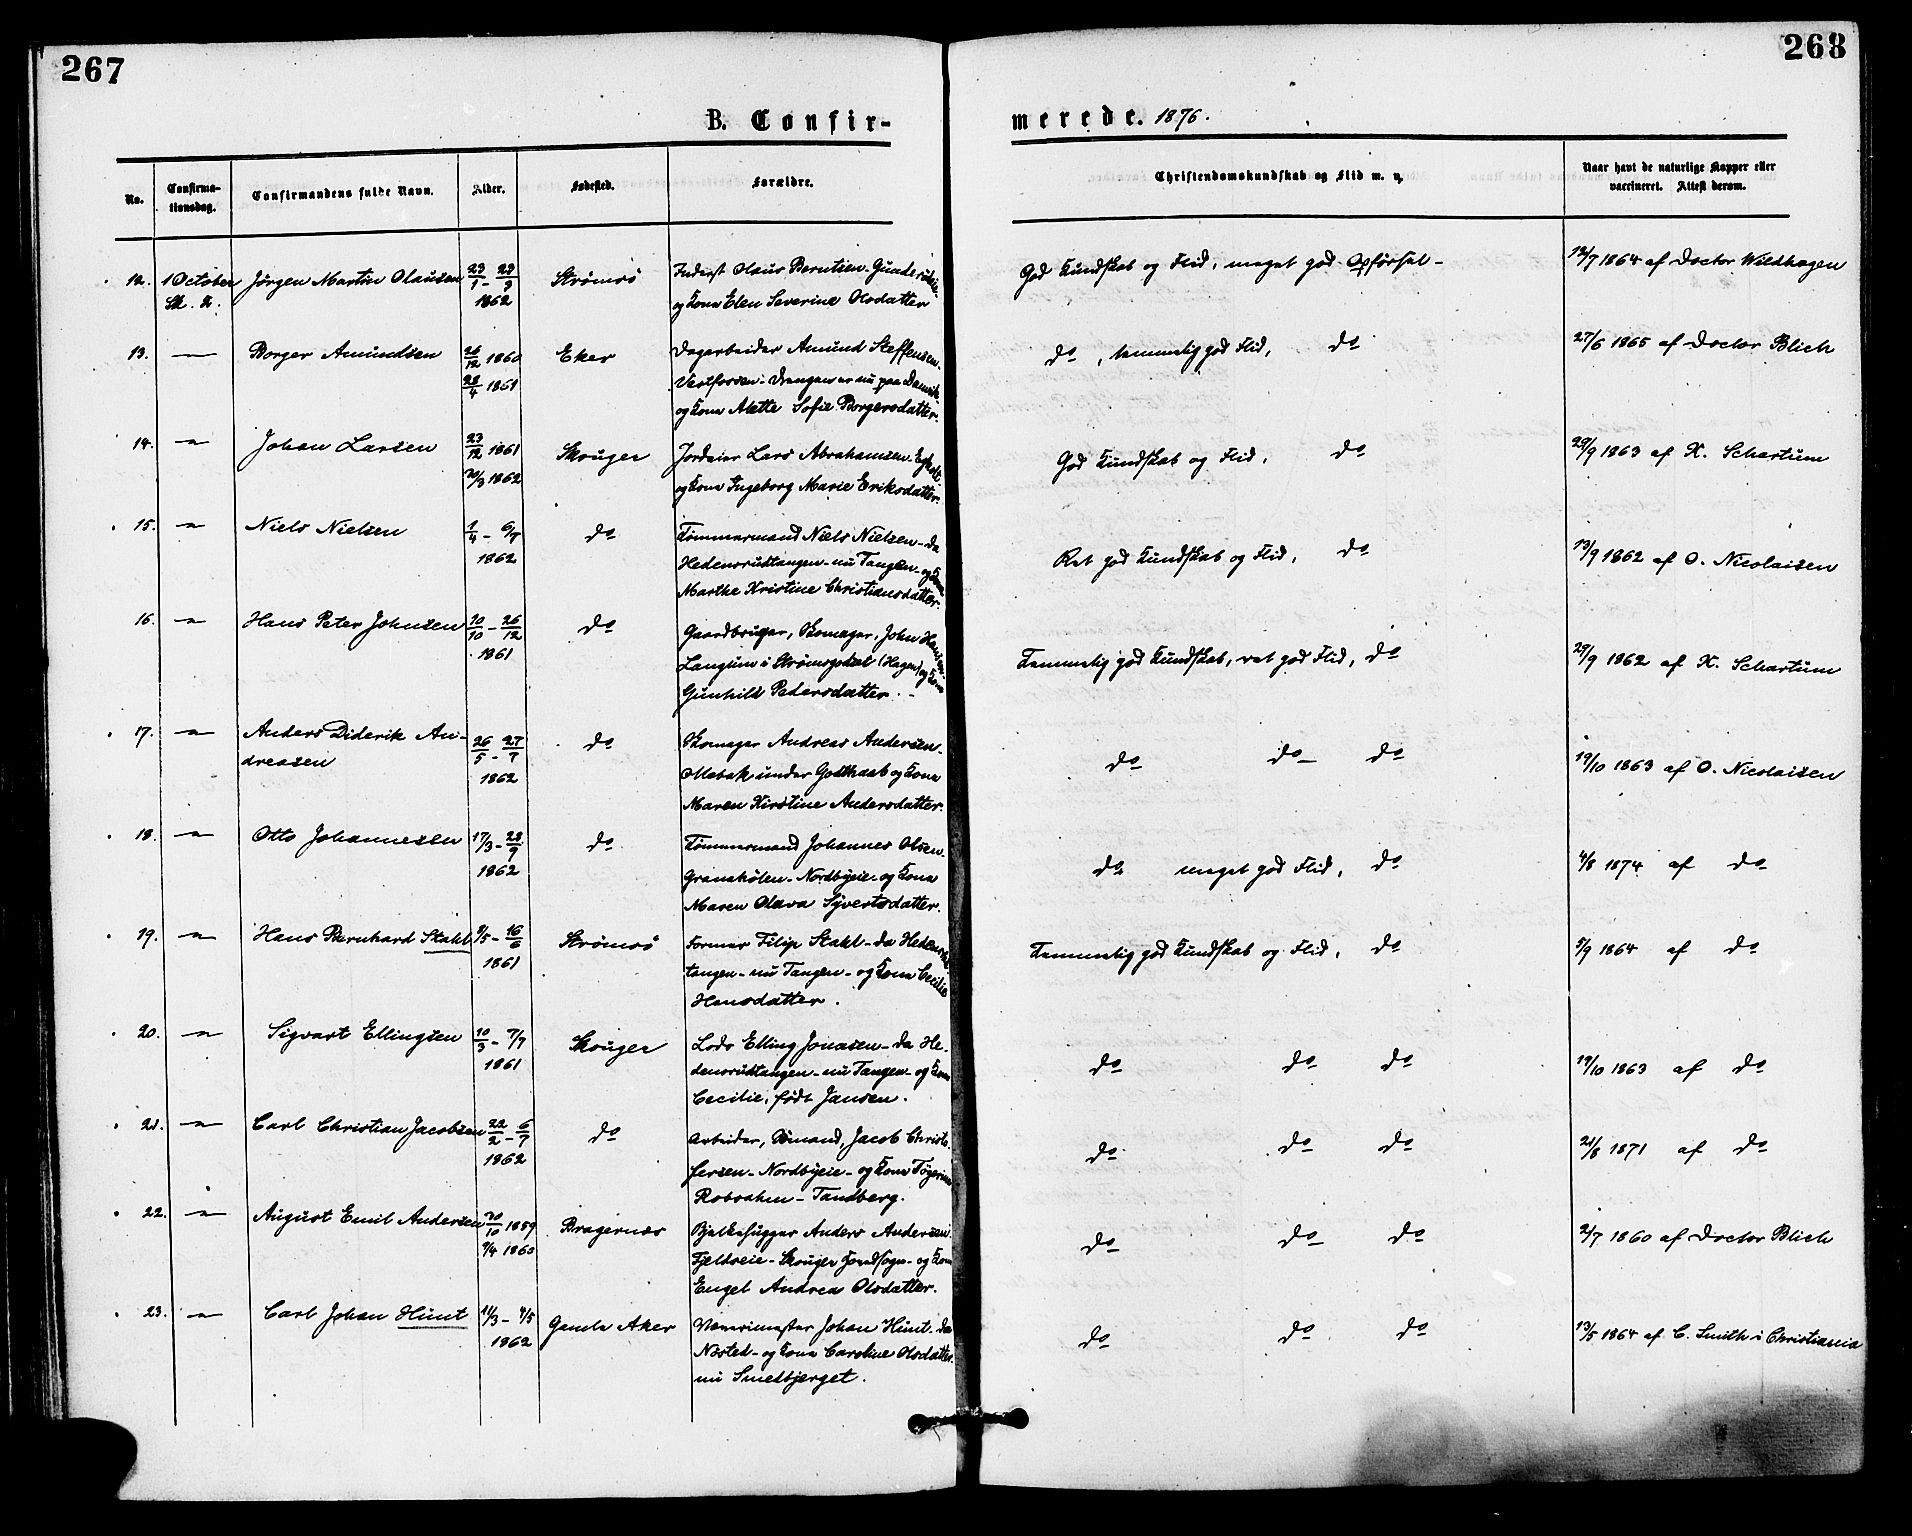 267
268
B. Confir-
merede. 1876.
No.
Confirma-
tionsdag.
Confirmandens fulde Navn.
Alder.
Fødested.
Forældre.
Christendomskundskab og Flid m. v.
Naar havt de naturlige Kopper eller
vaccineret. Attest derom.
12. 1 October Jørgen Martin Olausen 23/1 - 28/9 Strømsø Inderst Olaus Berntsen - Gunderudeie -
1862 og Kona Elen Severine Olsdatter
God Kundskab og Flid, meget god Opførsel - 12/7 1864 af Doctor Wildhagen
13. -"- Borger Amundsen 26/12 1860 Eker Dagarbeider Amund Steffensen -
28/4 1861 Vestfossen - Drengen er nu paa Damvik
og Kona Alette Sofie Borgersdatter.
do, temmelig god Flid, do 27/6 1865 af Doctor Blich
14. -"- Johan Larsen 23/12 1861 Skouger Jordeier Lars Abrahamsen -
30/3 1862 og Kona Ingeborg Marie Eriksdatter.
God Kundskab og Flid, do 29/9 1863 af K. Schartum
15. -"- Niels Nielsen 1/4 - 6/7 do Tømmermand Niels Nielsen - da
1862 Hedensrudtangen - nu Tangen - og Kona
Marthe Kristine Christiansdatter.
Ret god Kundskab og Flid, do 13/9 1862 af O. Nicolaisen
16. -"- Hans Peter Johnsen 20/10 - 26/12 do Gaardbruger, Skomager, John Hansen -
1861 Langum i Strømsgodset (Hagen) og Kona
Gunhild Pedersdatter. -
Temmelig god Kundskab, ret god Flid, do 25/9 1862 af K. Schartum
17. -"- Anders Diderik An- 26/5 - 27/7 do Skomager Andreas Andersen -
dreasen 1862 Mebak under Godthaab og Kona
Maren Kirstine Andersdatter.
do do - do 19/10 1863 af O. Nicolaisen
18. -"- Otto Johannesen 17/3 - 28/9 do Tømmermand Johannes Olsen -
1862 Granskølen - Nordbyeie - og Kona
Maren Olava Syvertsdatter.
do meget god Flid, do 4/8 1874 af do
19. -"- Hans Bernhard Stahl 9/5 - 16/6 Strømsø Former Filip Stahl - da Hedensrud-
1861 tangen - nu Tangen - og Kona Cecilie
Hansdatter.
Temmelig god Kundskab og Flid, do 5/9 1864 af do
20. -"- Sigvart Ellingsen 10/3 - 7/7 Skouger Lods Elling Jonasen - da He-
1861 densrudtangen - nu Tangen - og Kona
Cecilie, født Jansen.
do do do 19/10 1863 af do
21. -"- Carl Christian Jacobsen 22/2 - 6/7 do Arbeider, Sømand, Jacob Christo-
1862 fersen - Nordbyeie - og Kona
Robsahm - Tandberg.
do do do 21/8 1871 af do
22. -"- August Emil Andersen 30/10 1859 Bragernæs Bjelkehugger Anders Andersen
9/4 1860 Fjeldseie - Skouger Hovedsogn - og Kona
Engel Andrea Olsdatter.
do do do 2/7 1860 af Doctor Blich
23. -"- Carl Johan Hunt 11/3 - 4/5 Gamle Aker Johan Hunt - da
1862 Nøsted - og Kona Caroline Olsdatter.
nu Smedbjerget.
do do do 13/5 1864 af C. Smith i Christiania